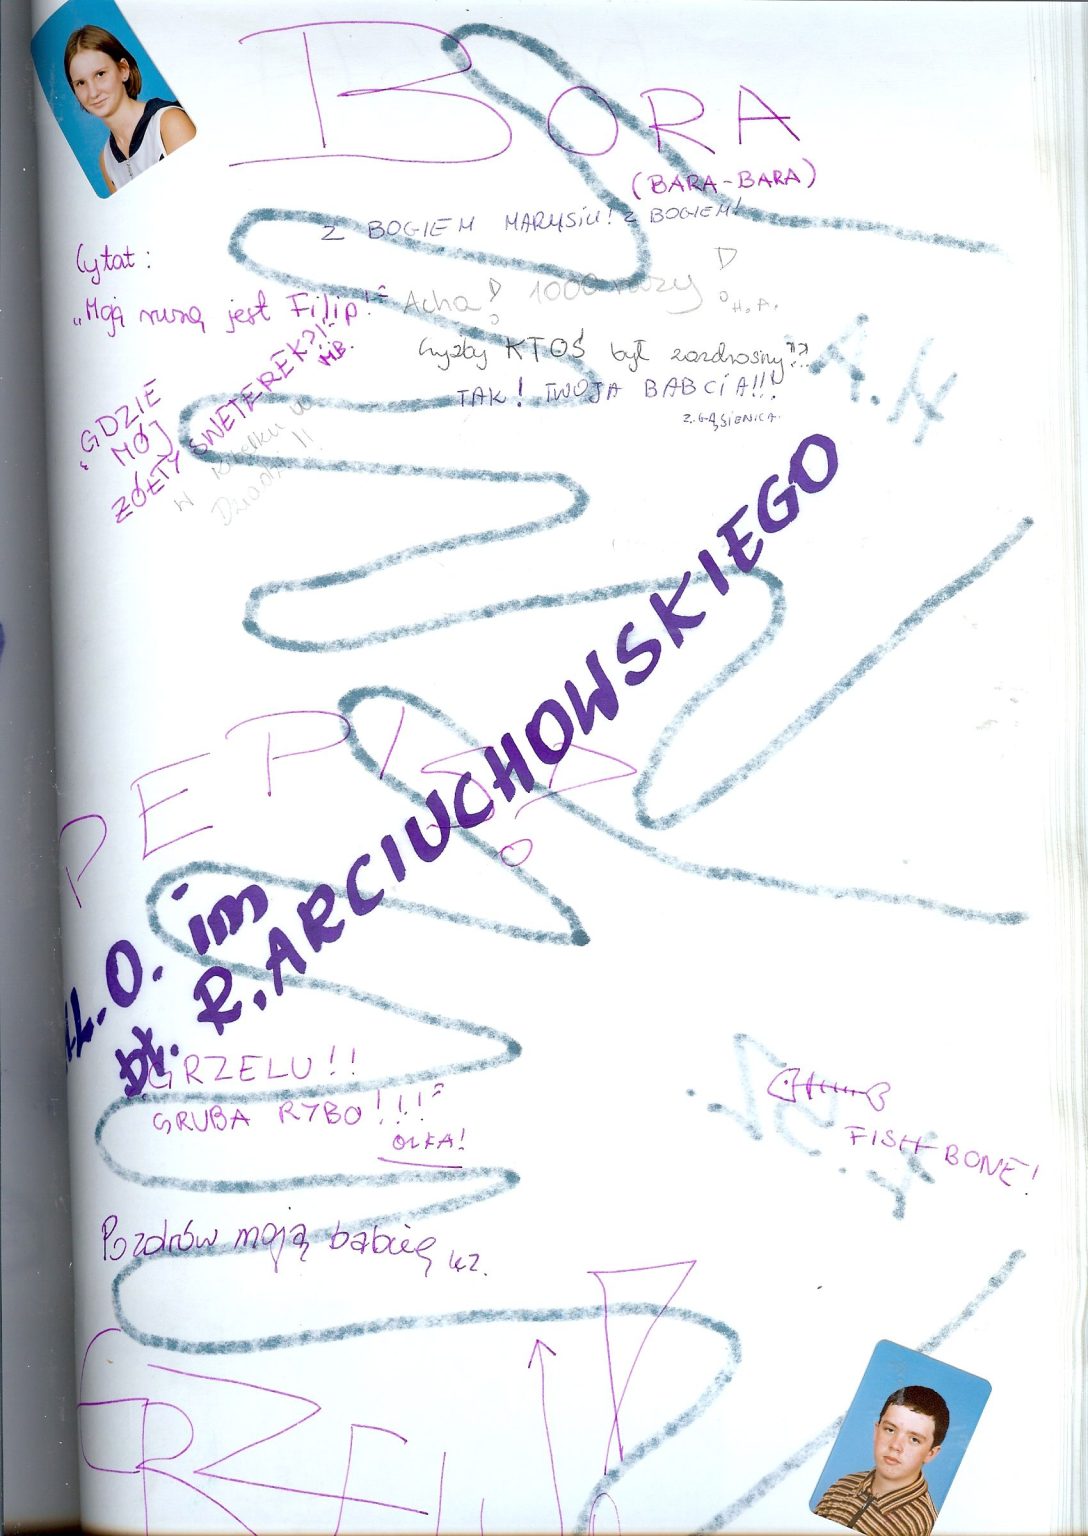 BORA
(BARA-BARA)
Z BOGIEM MARYSIU! Z BOGIEM!
Cytat:
"Moją muzą jest Filip!"
Acha! 1000 razy!
H.A.
Czyżby KTOŚ był zazdrosny?!?
TAK! TWOJA BABCIA!!!
Z. GĄSIENICA.
"GDZIE MÓJ ŻÓŁTY SWETEREK?!"
MB.
A.H
PEPISD!
Ł.O. im
bł. R. ARCIUCHOWSKIEGO
GRZELU!!
GRUBA RYBO!!!"
OLKA!
FISH BONE!
Pozdrów moją babcię
ŁZ.
GRZELU!